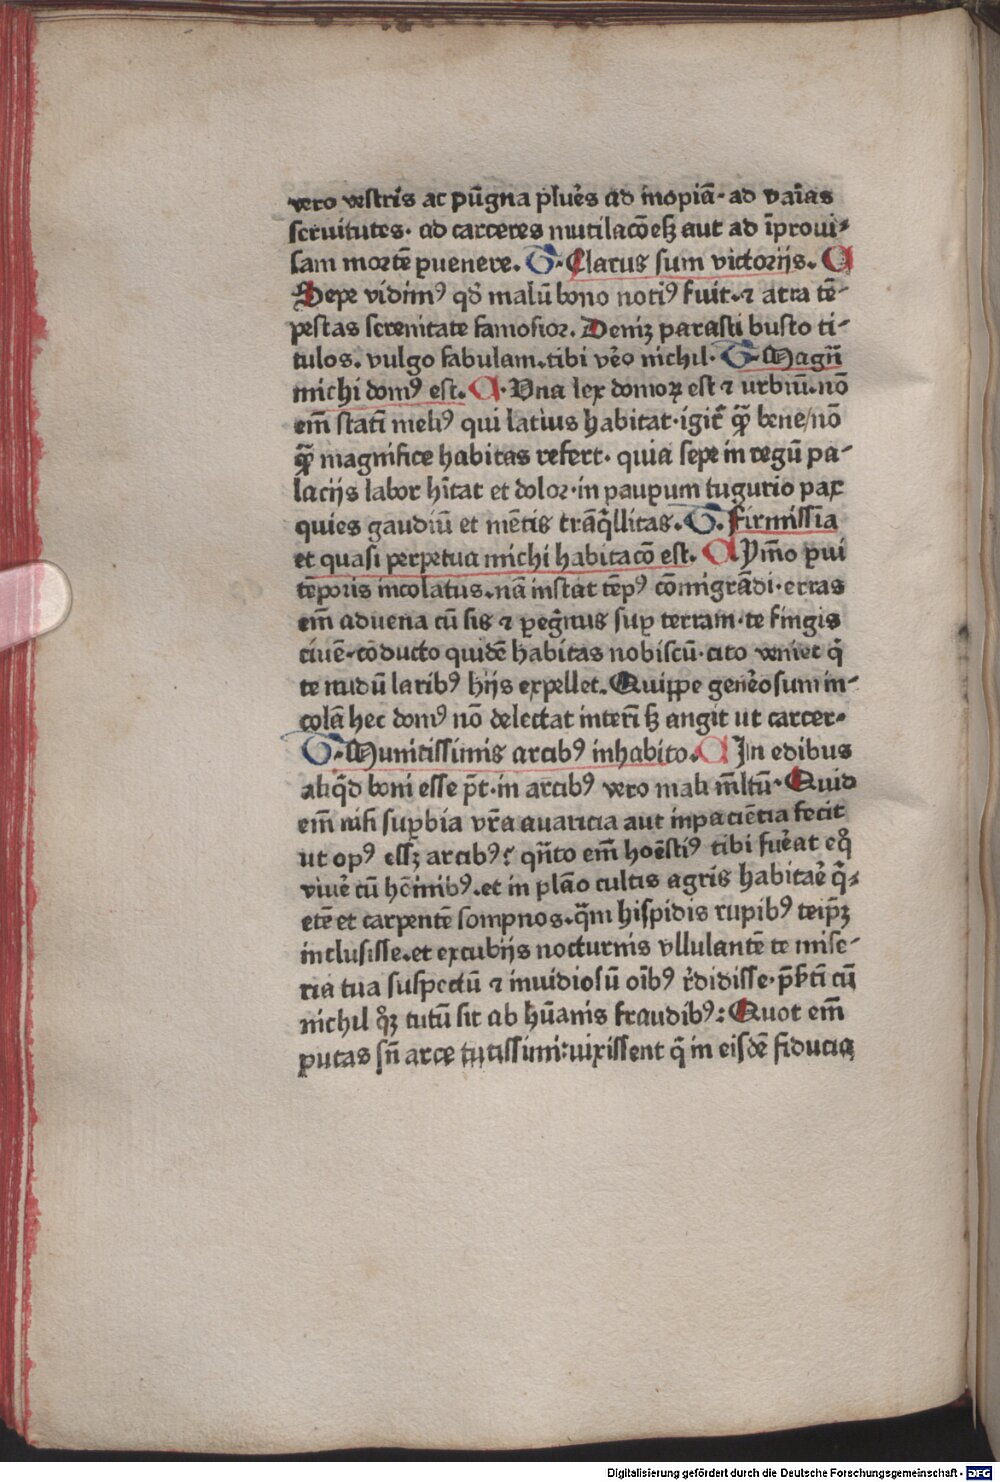 vero vestris ac pūgna plures ad inopiā· ad varias
seruitutes· ad carceres mutilacōesqꝫ aut ad īproui⸗
sam mortē ꝑuenere. G· Clarus sum victorijs. A
Sepe vidimꝰ qd̄ malū bono notiꝰ fuit·⁊ atra tē⸗
pestas serenitate famosior. Deniqꝫ parasti busto ti⸗
tulos. vulgo fabulam.tibi v̄o nichil· G·Magn̄
michi domꝰ est. A·Vna lex domoꝝ est ⁊ urbiū.nō
em̄ statī meliꝰ qui latius habitat·igit̄ ꝙ̄ bene/nō
ꝙ̄ magnifice habitas refert· quia sepe in regū pa⸗
lacijs labor hītat et dolor·in pauꝑum tugurio pax
quies gaudiū et mētis trāq̄llitas. G. Firmissīa
et quasi perpetua michi habitacō est. A.Ymo ꝑui
tēporis incolatus.nā instat tēpꝰ cōmigrādi·erras
em̄ aduena cū sis ⁊ ꝑegͥnus suꝑ terram·te fingis
ciuē·cōducto quidē habitas nobiscū·cito veniet q̄
te nudū laribꝰ hijs expellet. Quippe generosum in⸗
colā hec domꝰ nō delectat interī sꝫ angit ut carcer·
G·Munitissimis arcibꝰ inhabito. A In edibus
aliq̄d boni esse p̄t·in arcibꝰ vero mali m̄ltū· Quid
em̄ nisi suꝑbia vr̄a auaricia aut inpaciētia fecit
ut opꝰ essꝫ arcibꝰ? qn̄to em̄ hoēstiꝰ tibi fuerat eqͦ
viuē cū hōinibꝰ.et in plāo cultis agris habitaē q̄⸗
etē et carpentē sompnos.q̄m hispidis rupibꝰ teip̄ꝫ
inclusisse.et excubijs nocturnis vllulantē te mise⸗
ria tua suspectū ⁊ inuidiosū oībꝰ r̄didisse·p̄s̄tī cū
nichil qͦꝫ tutū sit ab hūanis fraudibꝰ: Quot em̄
putas sn̄ arce tutissimi:vixissent q̄ in eisdē fiducia